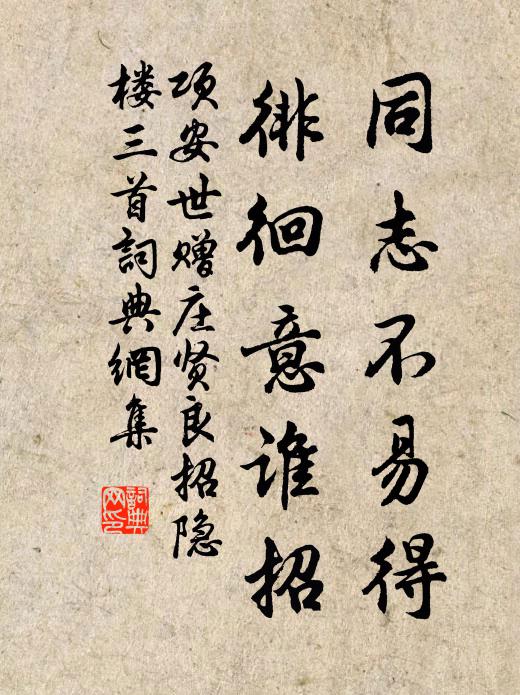 同志不易得
徘徊意谁招
项安世赠庄贤良招隐
楼三首詞典網集
詞典
网印